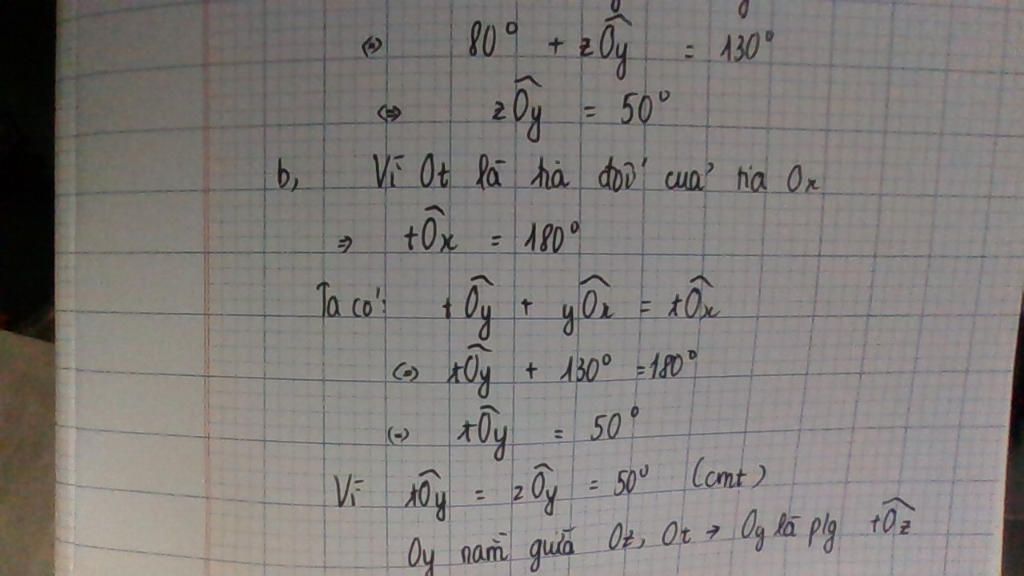 ⇔ 80° + zÔy = 130°
⇔ zÔy = 50°
b, Vì Ot là tia đối của tia Ox
⇒ tÔx = 180°
Ta có: tÔy + yÔx = tÔx
⇔ tÔy + 130° = 180°
⇔ tÔy = 50°
Vì tÔy = zÔy = 50° (cmt)
Oy nằm giữa Oz, Ot → Oy là p/g tÔz